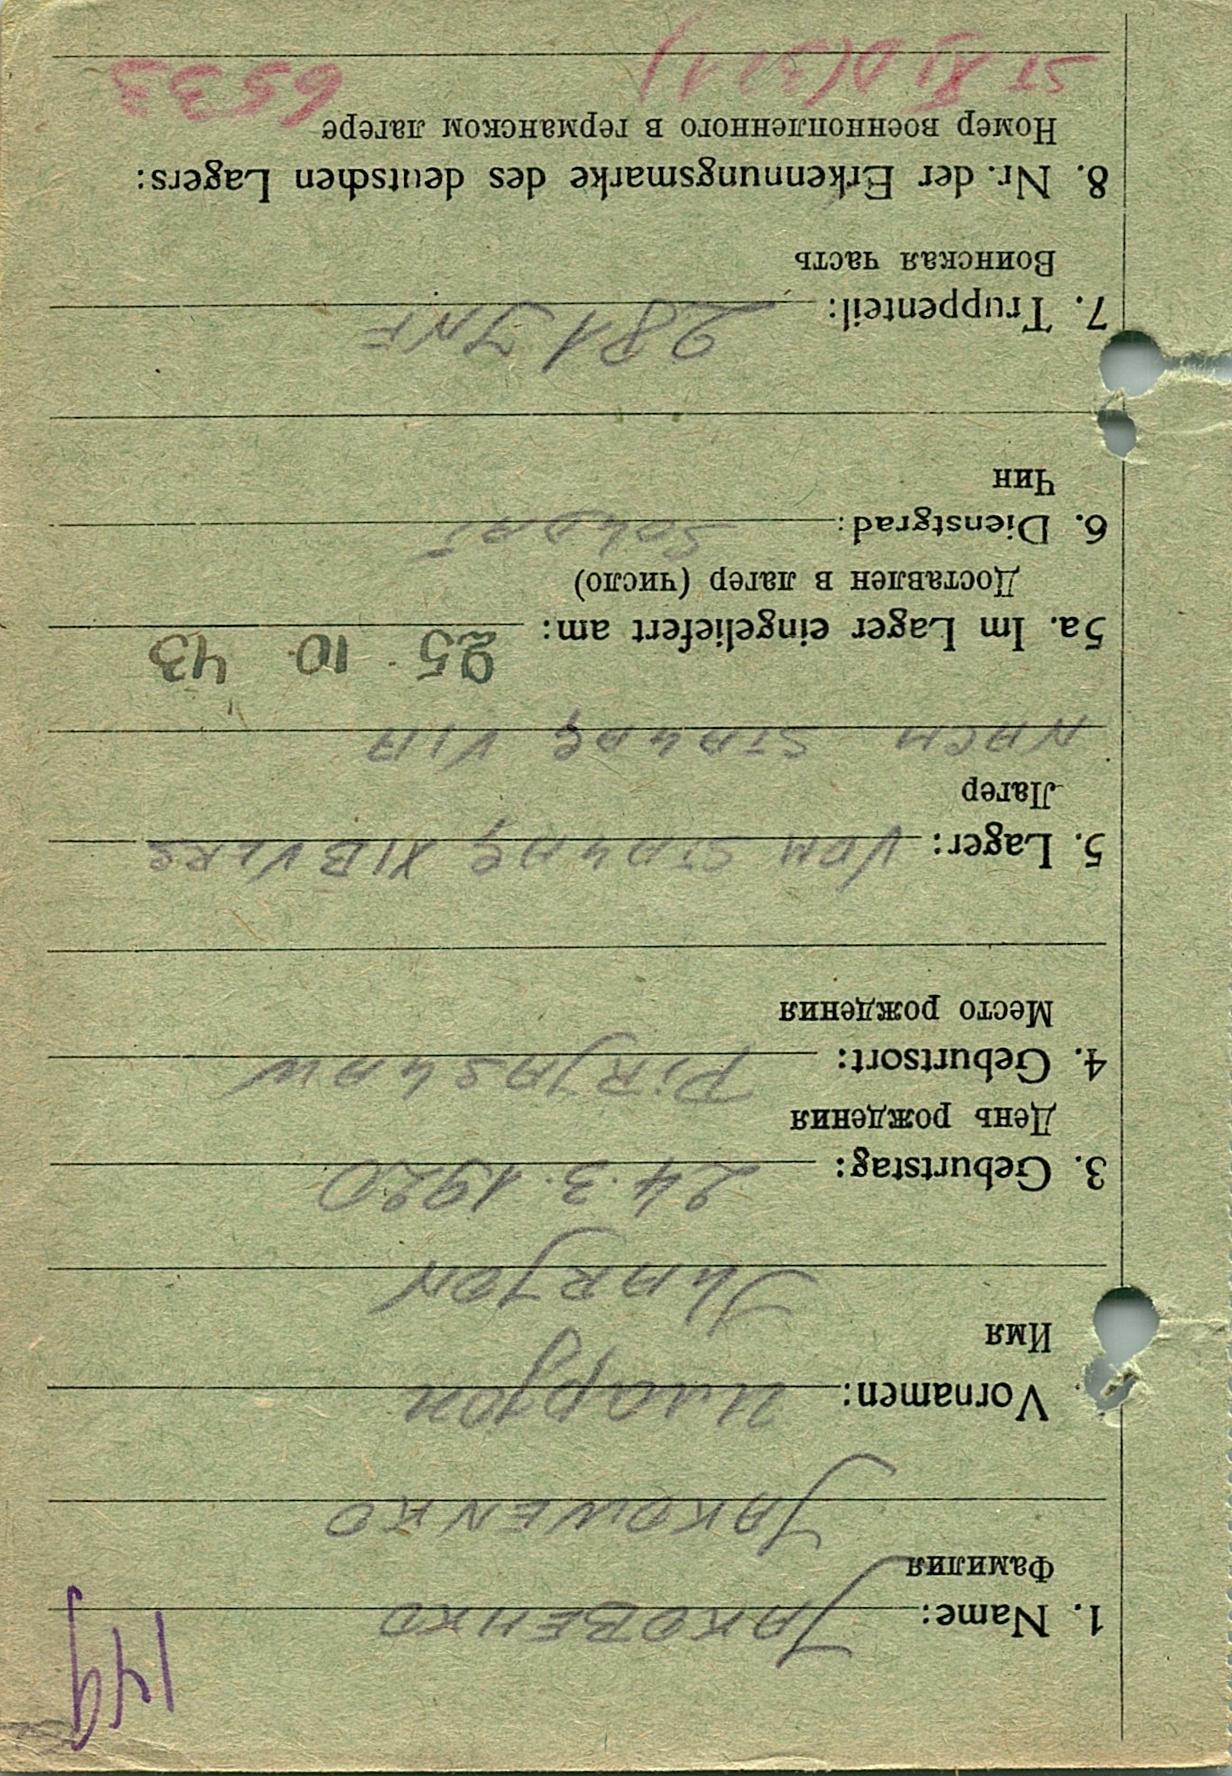 149
1. Name: JAKOBEHKO
Фамилия
JAKOWENKO
Vornamen: иларјон
Имя
JLARJON
3. Geburtstag: 24.3.1920
День рождения
4. Geburtsort: PIRJASLAW
Место рождения
5. Lager: VOM STALAG XIB VERS
Лагер
NACH STALAG VIA
5a. Im Lager eingeliefert am: 25. 10. 43
Доставлен в лагер (число)
6. Dienstgrad: SOLDAT
Чин
7. Truppenteil: 281 JNF
Воинская часть
8. Nr. der Erkennungsmarke des deutschen Lagers:
Номер военнопленного в германском лагере
ST XI D (321) 6533